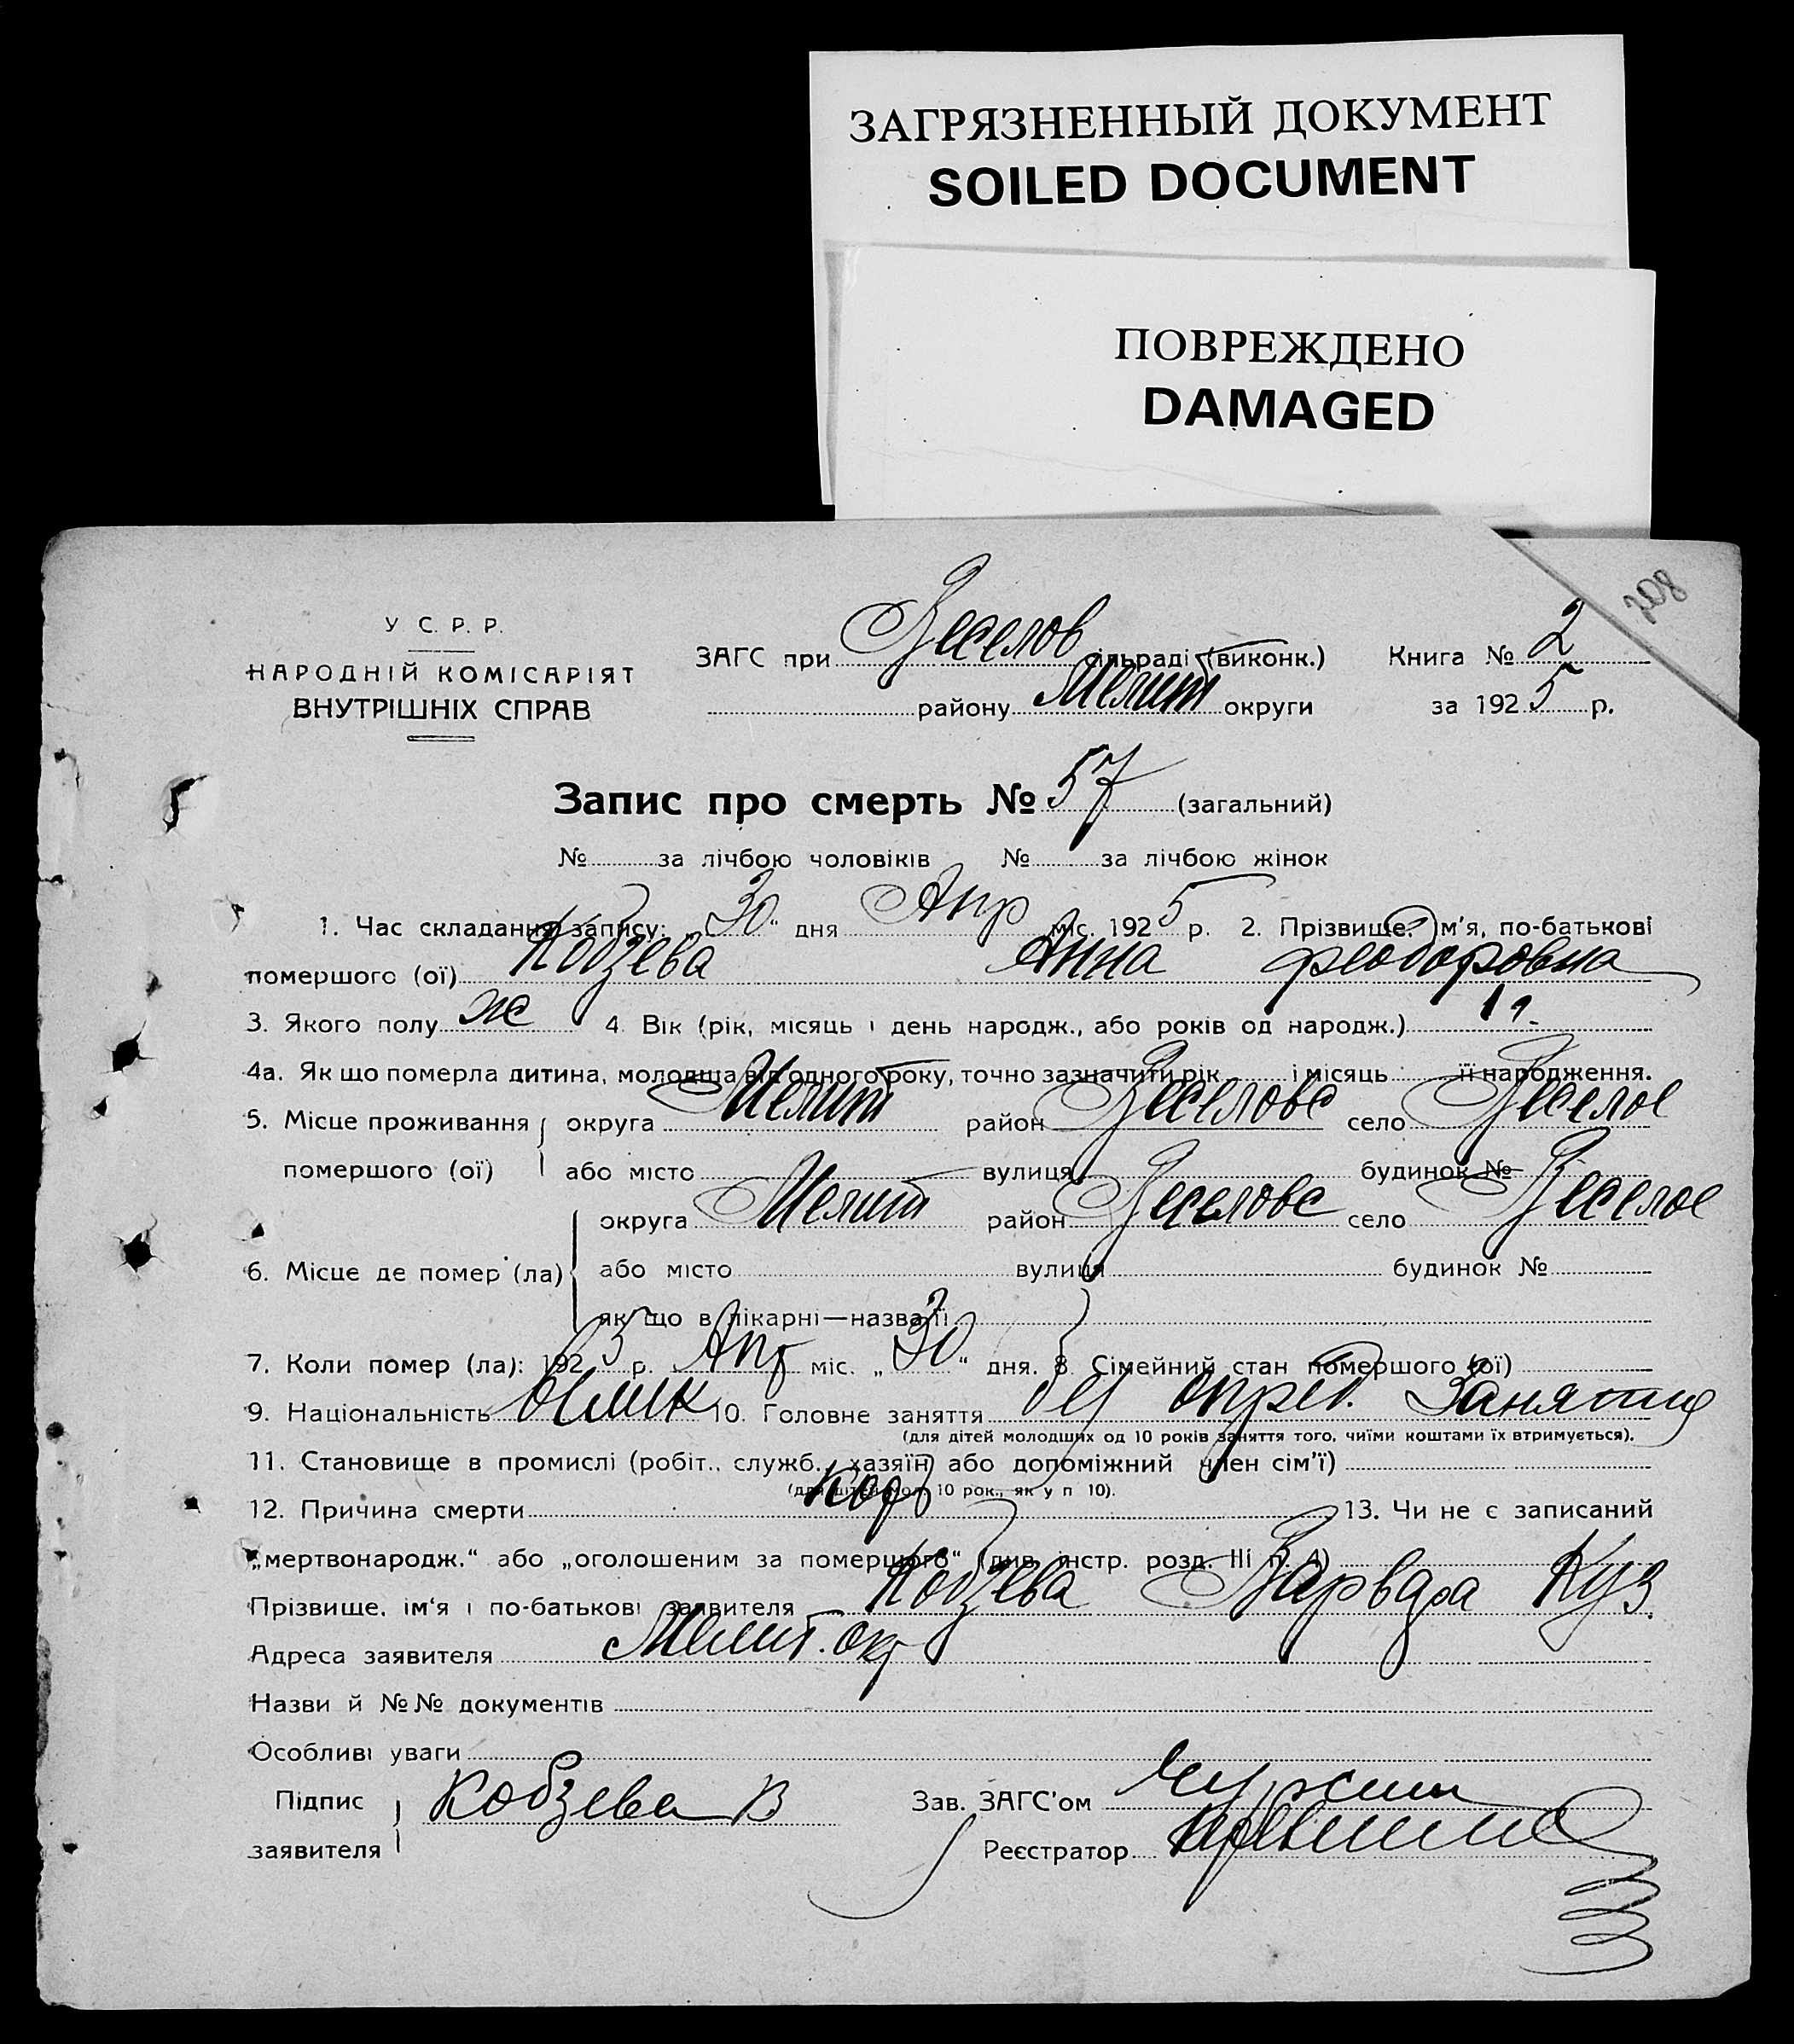 ЗАГРЯЗНЕННЫЙ ДОКУМЕНТ
SOILED DOCUMENT
ПОВРЕЖДЕНО
DAMAGED
У С. Р. Р.
НАРОДНІЙ КОМІСАРІЯТ
ВНУТРІШНІХ СПРАВ
ЗАГС при Веселов сільраді (виконк.) Книга № 2
району Мелит округи за 1925 р.
Запис про смерть № 57 (загальний)
№ за лічбою чоловіків № за лічбою жінок
1. Час складання запису: „30“ дня Апр міс. 1925 р. 2. Прізвище, ім'я, по-батькові
помершого (ої) Кобзева Анна Феодоровна
3. Якого полу ж 4. Вік (рік, місяць і день народж., або років од народж.) 1 г.
4а. Як що померла дитина, молодша від одного року, точно зазначити рік і місяць її народження.
5. Місце проживання округа Мелит район Веселовс село Веселое
помершого (ої) або місто вулиця будинок №
округа Мелит район Веселовс село Веселое
6. Місце де помер (ла) або місто вулиця будинок №
як що в лікарні—назва її
7. Коли помер (ла): 1925 р. Апр міс. „30“ дня. 8. Сімейний стан помершого (ої)
9. Національність 10. Головне заняття без опред. занятия
(для дітей молодших од 10 років заняття того, чиїми коштами їх втримується).
11. Становище в промислі (робіт., служб., хазяїн або допоміжний член сім'ї)
(для дітей мол. 10 рок., як у п 10).
12. Причина смерти Корь 13. Чи не є записаний
„мертвонародж.“ або „оголошеним за помершого“ (див. інстр. розд. III п. 4)
Прізвище, ім'я і по-батькові заявителя Кобзева Варвара Куз
Адреса заявителя Мелит. окр
Назви й №№ документів
Особливі уваги
Підпис Кобзева В Зав. ЗАГС'ом
заявителя Реєстратор